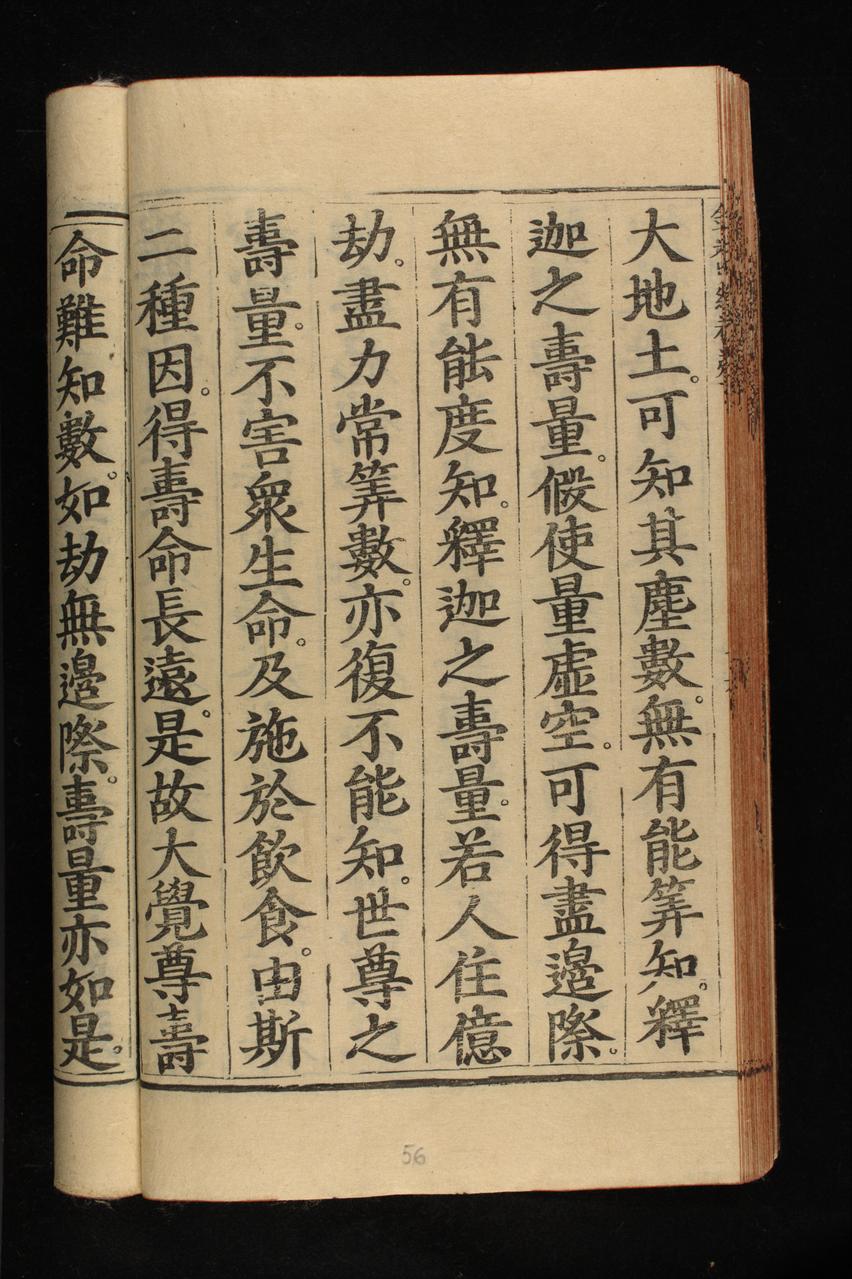 大地土。可知其塵數。無有能筭知。釋
迦之壽量。假使量虛空。可得盡邊際。
無有能度知。釋迦之壽量。若人住億
劫。盡力常筭數。亦復不能知。世尊之
壽量。不害衆生命。及施於飲食。由斯
二種因。得壽命長遠。是故大覺尊壽
命難知數。如劫無邊際。壽量亦如是。
56